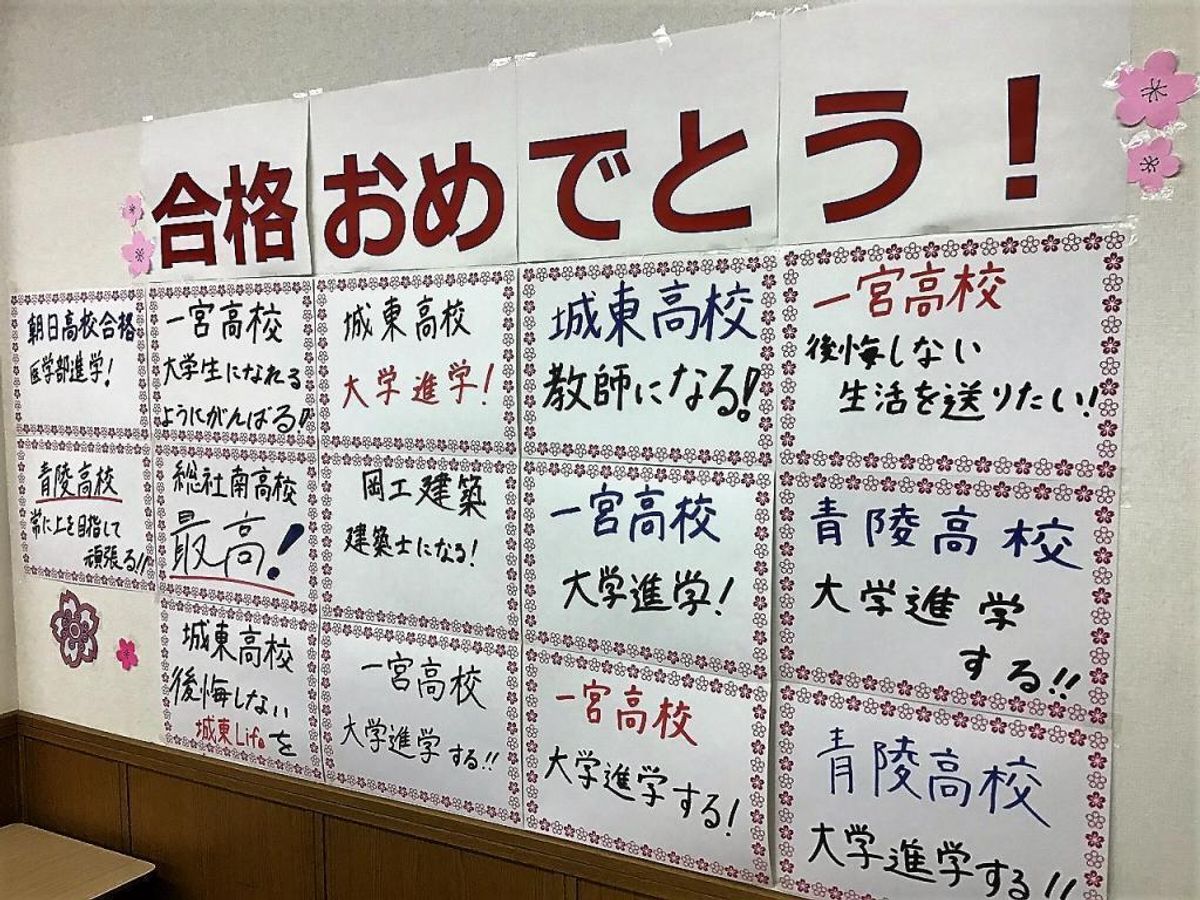 合格おめでとう！
朝日高校合格
医学部進学!
一宮高校
大学生になれる
ようにがんばる!!
城東高校
大学進学!
城東高校
教師になる!
一宮高校
後悔しない
生活を送りたい!
青陵高校
常に上を目指して
頑張る!!
総社南高校
最高!
岡工建築
建築士になる!
一宮高校
大学進学!
青陵高校
大学進学
する!!
城東高校
後悔しない
城東Lifeを
一宮高校
大学進学する!!
一宮高校
大学進学する!
青陵高校
大学進学する!!